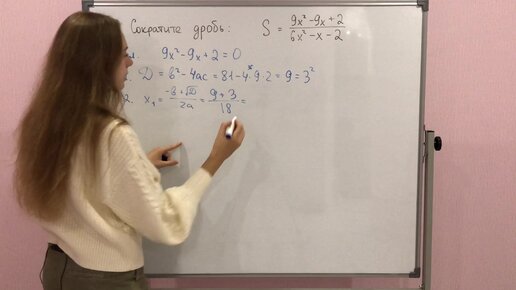 Сократите дробь: S = (9x² - 9x + 2)/(6x² - x - 2)
9x² - 9x + 2 = 0
1. D = b² - 4ac = 81 - 4 · 9 · 2 = 9 = 3²
2. x₁ = (-b + √D)/2a = (9 + 3)/18 =